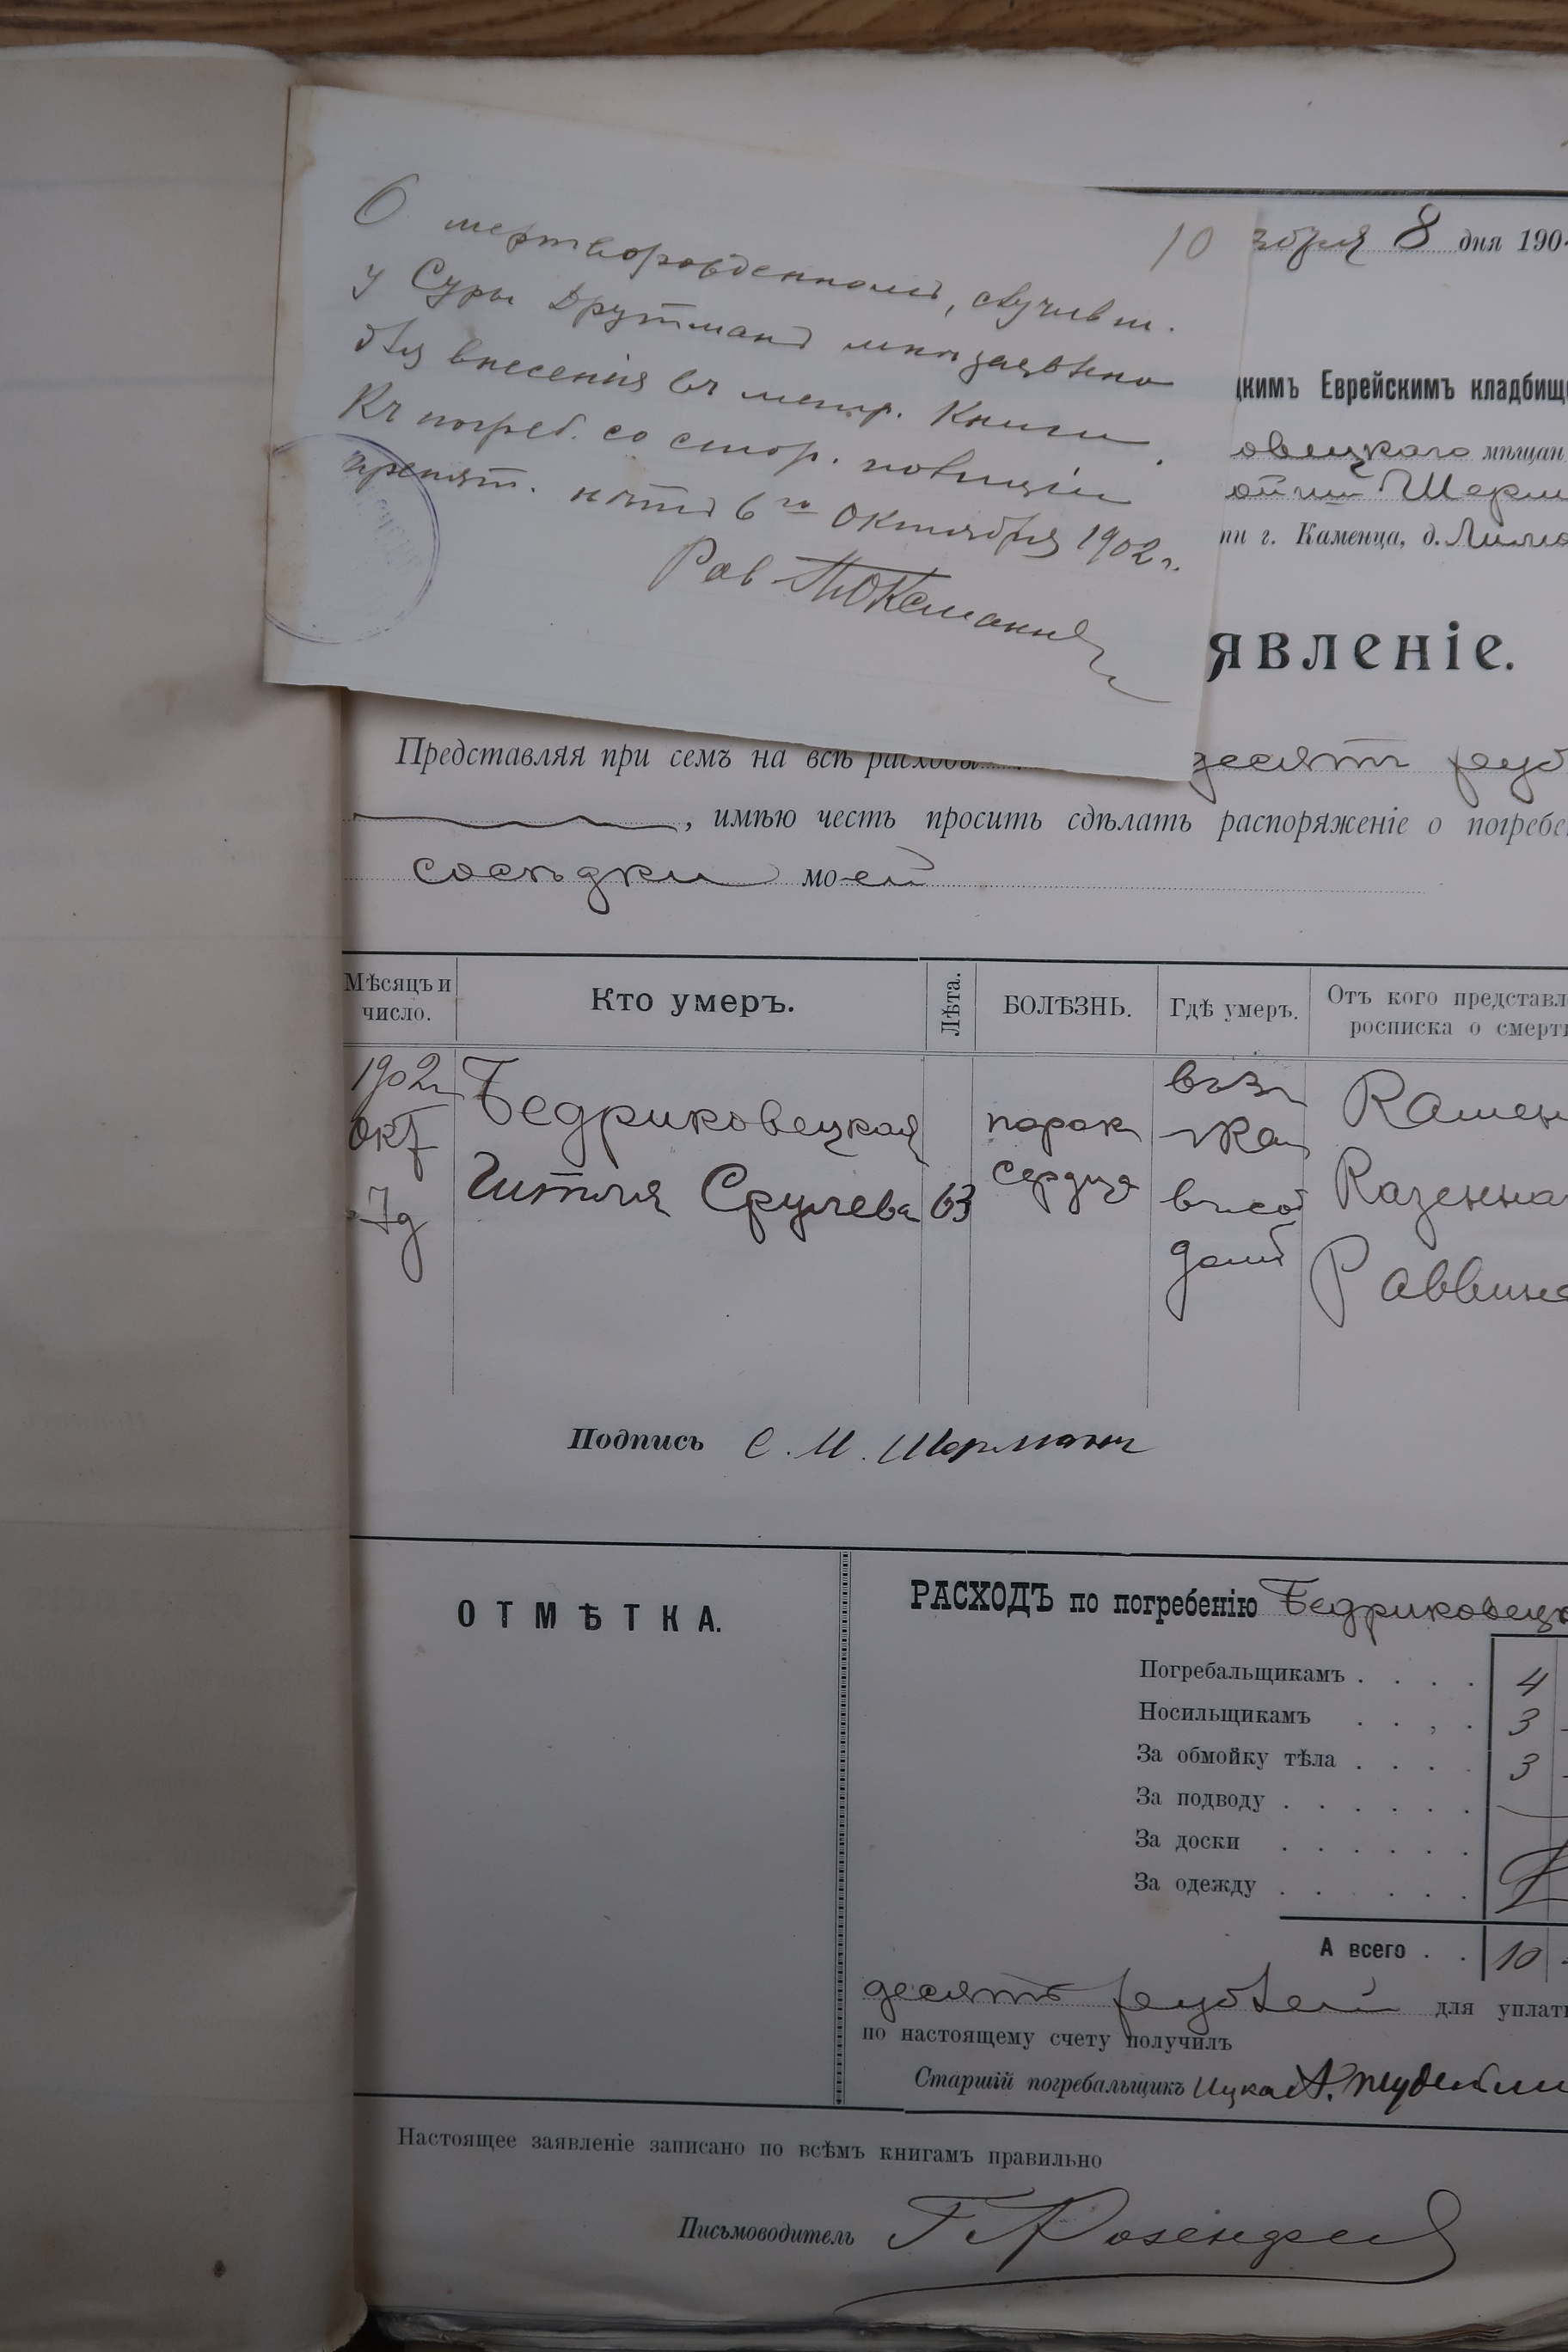 10
О мертворожденномъ, случивш.
у Суры Друтманъ мнѣ заявлено
для внесенія въ метр. книги.
Къ погреб. со стор. полиціи
препят. нѣтъ 6го Октября 1902 г.
Рав
ября 8 дня 190
цкимъ Еврейскимъ кладбищ
овецкаго мѣщан
Шерм
ти г. Каменца, д.
явленіе.
Представляя при семъ на всѣ расходы десять руб
, имѣю честь просить сдѣлать распоряженіе о погребе
сосѣдки моей
Мѣсяцъ и число.
Кто умеръ.
Лѣта.
БОЛѢЗНЬ.
Гдѣ умеръ.
Отъ кого представл
росписка о смерти
1902
Окт
7д
Бедриковецкая
Гитля Срулева
63
порок
сердца
Камен
Казенна
Раввина
Подпись С. М. Шерманъ
ОТМѢТКА.
РАСХОДЪ по погребенію Бедриковец
Погребальщикамъ . . . . 4
Носильщикамъ . . , . 3
За обмойку тѣла . . . . 3
За подводу . . . . . .
За доски . . . . . .
За одежду . . . . . .
А всего . . 10
десять рублей для уплат
по настоящему счету получилъ
Старшій погребальщикъ Ицка
Настоящее заявленіе записано по всѣмъ книгамъ правильно
Письмоводитель Г. Розенфел